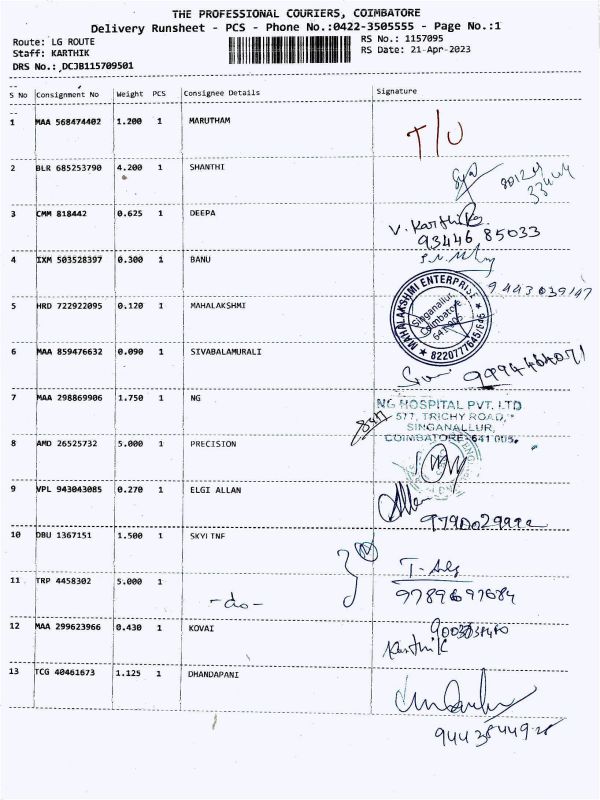 THE PROFESSIONAL COURIERS, COIMBATORE
Delivery Runsheet - PCS - Phone No.:0422-3505555 - Page No.:1
Route: LG ROUTE
RS No.: 1157095
Staff: KARTHIK
RS Date: 21-Apr-2023
DRS No.: DCJB115709501
S No Consignment No Weight PCS Consignee Details Signature
1 MAA 568474402 1.200 1 MARUTHAM T/U
2 BLR 685253790 4.200 1 SHANTHI
3 CMM 818442 0.625 1 DEEPA V. Karthika
93446 85033
4 IXM 503528397 0.300 1 BANU
9443039147
5 HRD 722922095 0.120 1 MAHALAKSHMI
MAHALAKSHMI ENTERPRISE
Singanallur,
Coimbatore
641 005
★ 8220777645/646 ★
6 MAA 859476632 0.090 1 SIVABALAMURALI
7 MAA 298869906 1.750 1 NG
NG HOSPITAL PVT. LTD
577, TRICHY ROAD,
SINGANALLUR,
COIMBATORE-641 005.
8 AMD 26525732 5.000 1 PRECISION
9 VPL 943043085 0.270 1 ELGI ALLAN
10 DBU 1367151 1.500 1 SKYLINE
11 TRP 4458302 5.000 1 -do-
9789697684
12 MAA 299623966 0.430 1 KOVAI
Karthik
13 TCG 40461673 1.125 1 DHANDAPANI